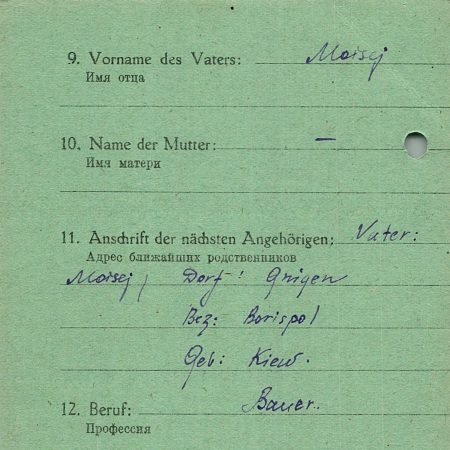 9. Vorname des Vaters: Moisej
Имя отца
10. Name der Mutter: –
Имя матери
11. Anschrift der nächsten Angehörigen: Vater:
Адрес ближайших родственников
Moisej, Dorf: Gnigen
Bez: Borispol
Geb: Kiew.
12. Beruf: Bauer.
Профессия